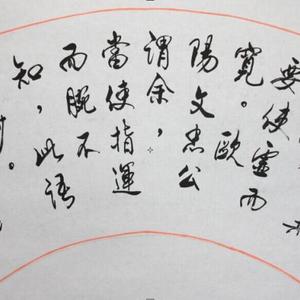 要使虛而
寬。歐
陽文忠公
謂余，
當使指運
而腕不
知，此語